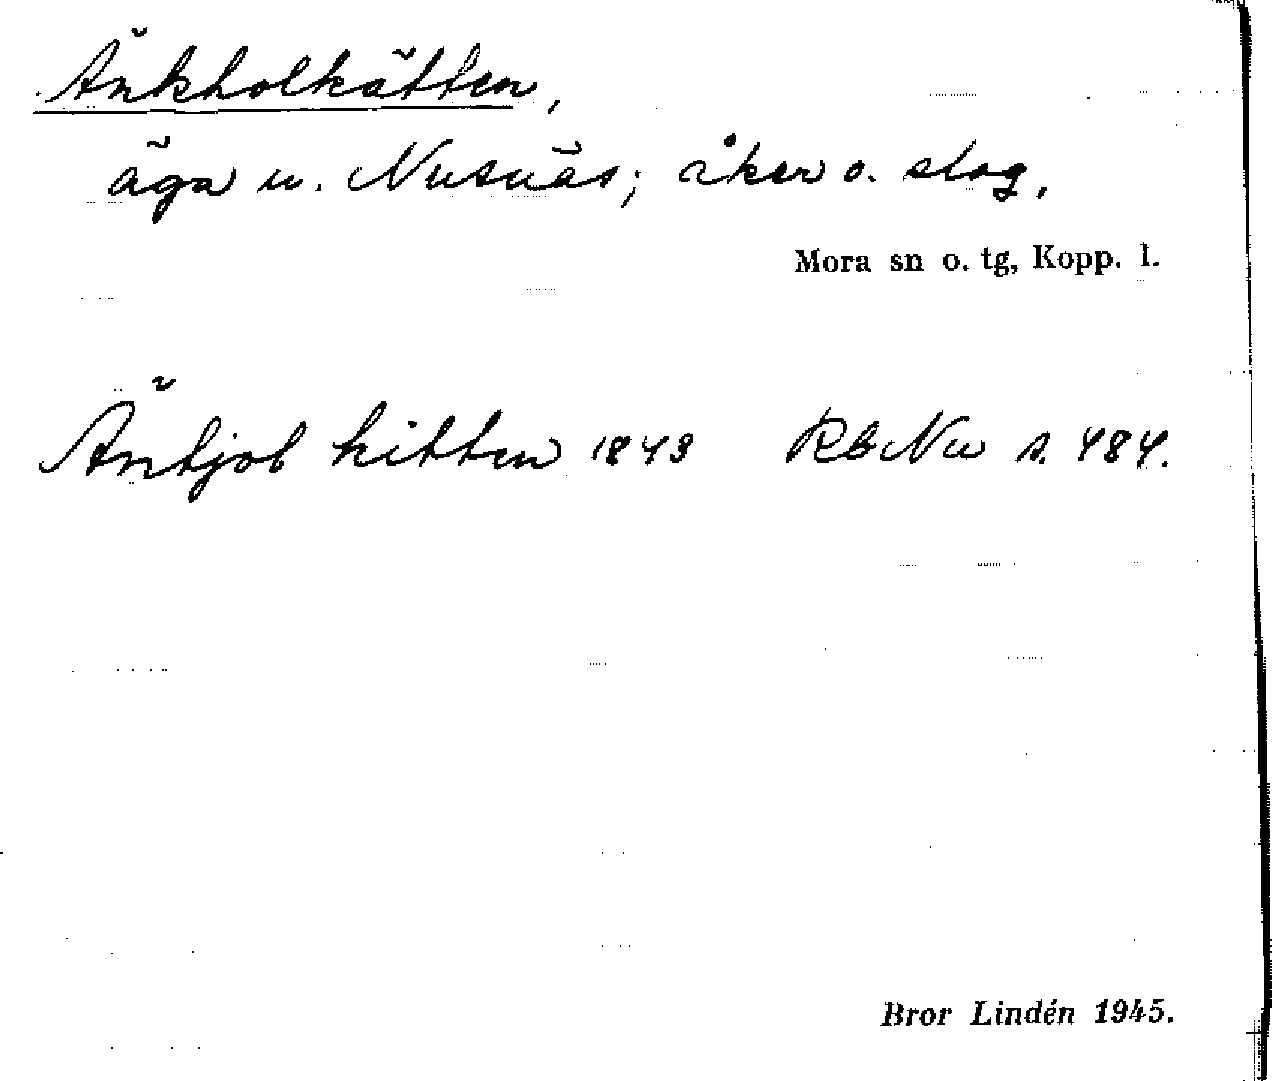 Änkholkätten,
äga u. Nusnäs; åker o. slog,
Mora sn o. tg, Kopp. l.
Äntjob kitten 1843 RbNu s. 484.
Bror Lindén 1945.